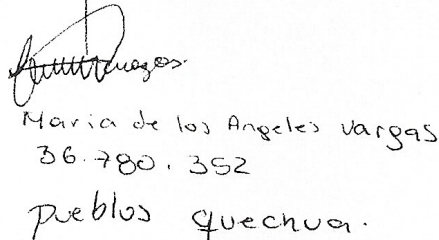 Maria de los Angeles vargas
36.780.352
pueblos quechua.